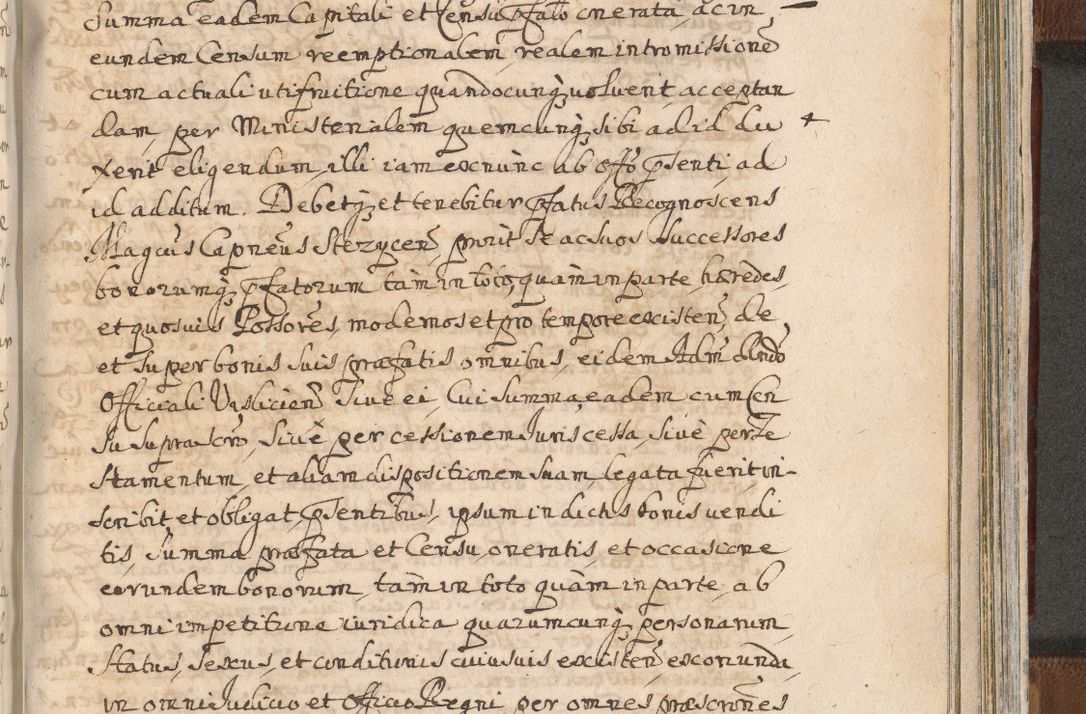 Summa eadem Capitali et Censu pfato onerata, ac in
eundem Censum reemptionalem, realem intromissione
cum actuali utifruitione quandocunq voluerit, acceptan
dam, per Ministerialem quemcunq sibi ad id du
xerit eligendum, illi iam exnunc ab offo psenti, ad
id additum. Debetq et tenebitur pfatus Recognoscens
Magcus Capneus Stezycen, prout se ac suos Successores
bonorumq pfatorum tam in toto, quam in parte, hæredes,
et quosuis Possores, modernos et pro tempore existen, de
et super bonis suis præfatis omnibus, eidem Adm dndo
Officiali Vislicien, Sive ei, Cui summa eadem cum Cen
su suprascro, sive per cessionem Iuris cessa, sive per te
stamentum, et aliam dispositionem suam, legata fuerit in-
scribit et obligat, psentibus, ipsum in dictis bonis vendi
tis, Summa præfata et Censu oneratis, et occasione
eorundem bonorum, tam in toto quam in parte, ab
omni impetitione iuridica quarumcunq personarum
Status, sexus, et conditionis cuiusuis existen, excunda
in omni Iudicio et Officio Regni per omnes præscrones